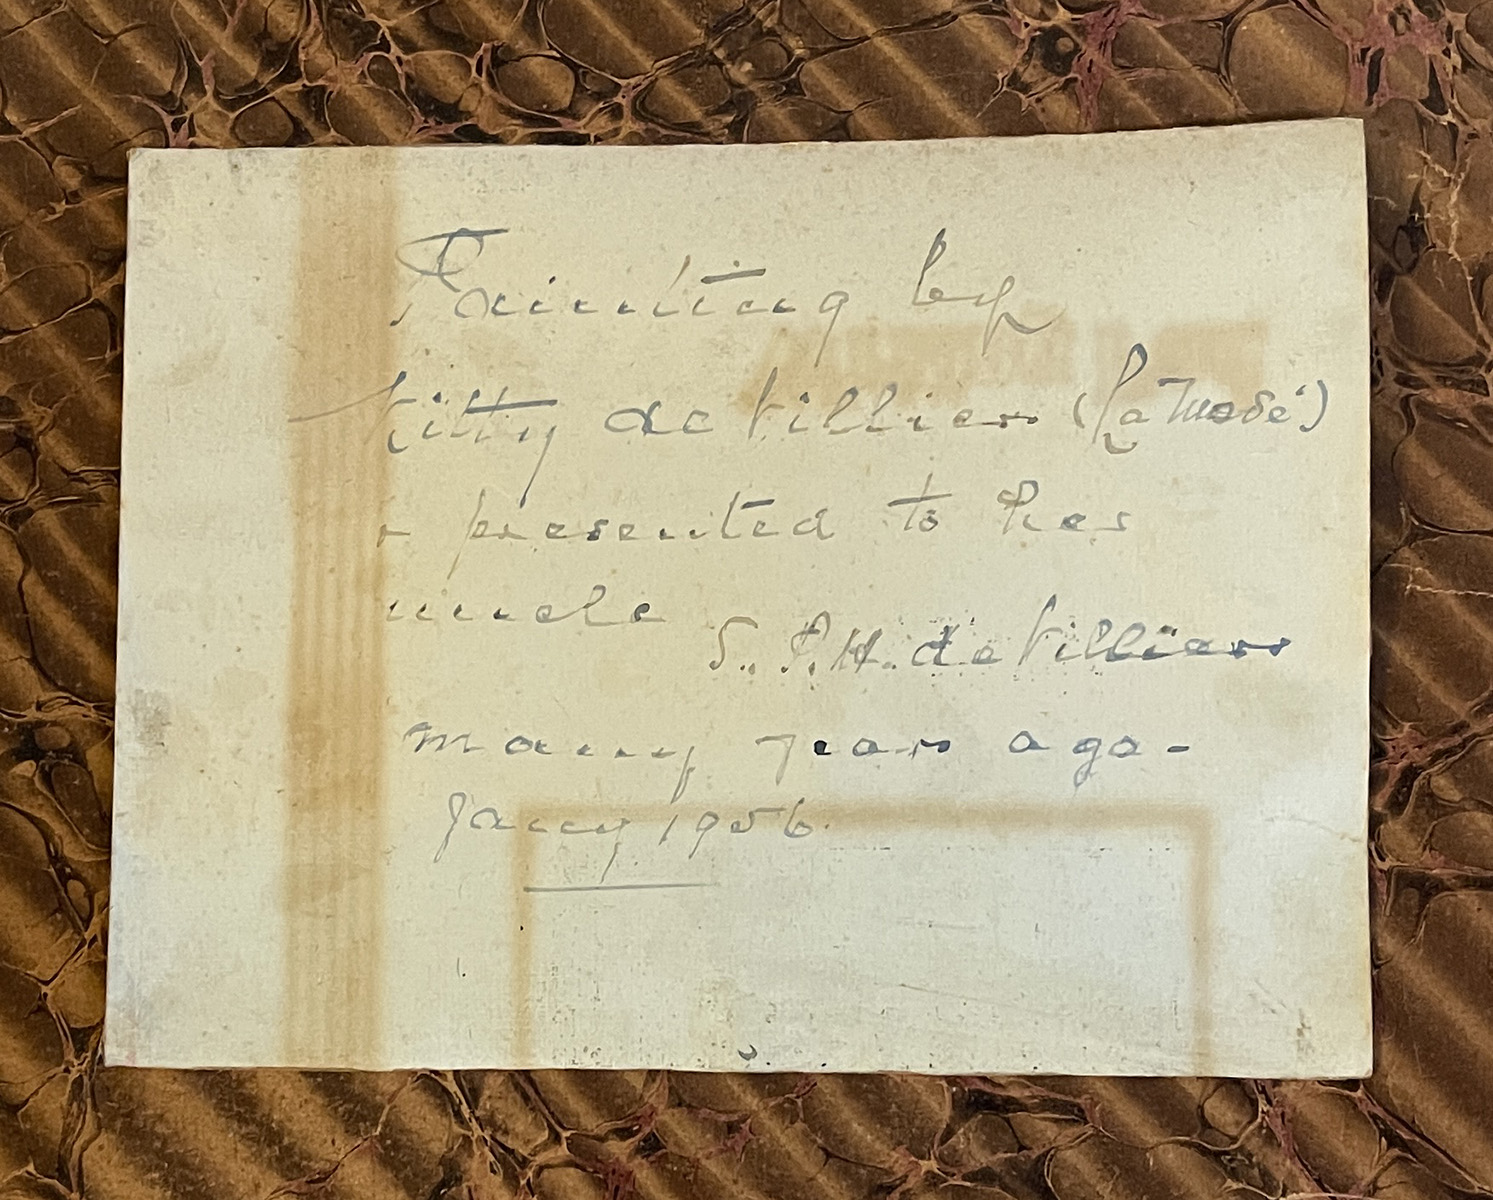 Painting by
Kitty de Villiers (La
& presented to her
uncle S. P. H. de Villiers
many years ago -
Jany 1956.